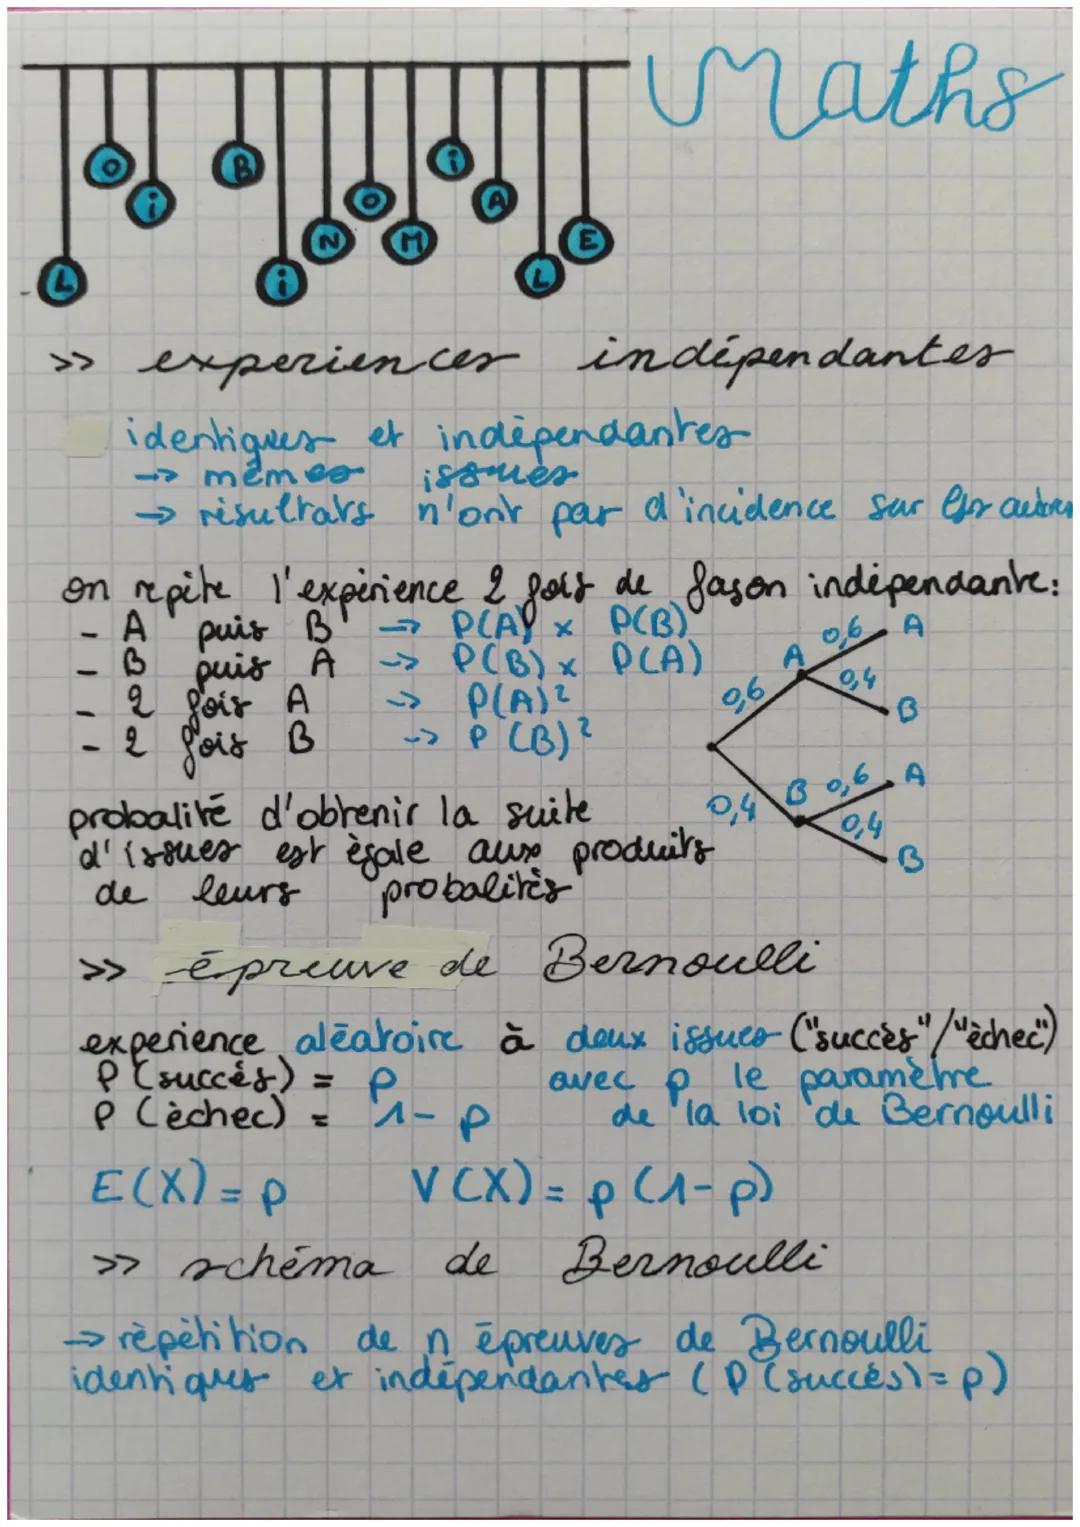 Maths
LOi BiNOMiALE
>> experiences indépendantes
identiques et indépendantes
→ mêmes issues
→ résultats n'ont pas d'incidence sur les autres
on repète l'expérience 2 fois de fason indépendante:
- A puis B → P(A) x P(B)
- B puis A → P(B) x P(A)
- 2 fois A → P(A)²
- 2 fois B → P(B)²
0,6 A 0,6 A
0,4 B
0,4 B 0,6 A
0,4 B
probalité d'obtenir la suite
d'issues est égale aux produits
de leurs probalités
>> épreuve de Bernoulli
experience aléatoire à deux issues ("succès"/"échec")
P(succés) = p avec p le paramètre
P(échec) = 1-p de la loi de Bernoulli
E(X) = p V(X) = p(1-p)
>> schéma de Bernoulli
→ répétition de n épreuves de Bernoulli
identiques et indépendantes (P(succés) = p)